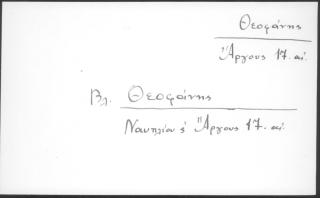 Θεοφάνης
Ἄργους 17. αἰ.
Βλ. Θεοφάνης
Ναυπλίου & Ἄργους 17. αἰ.